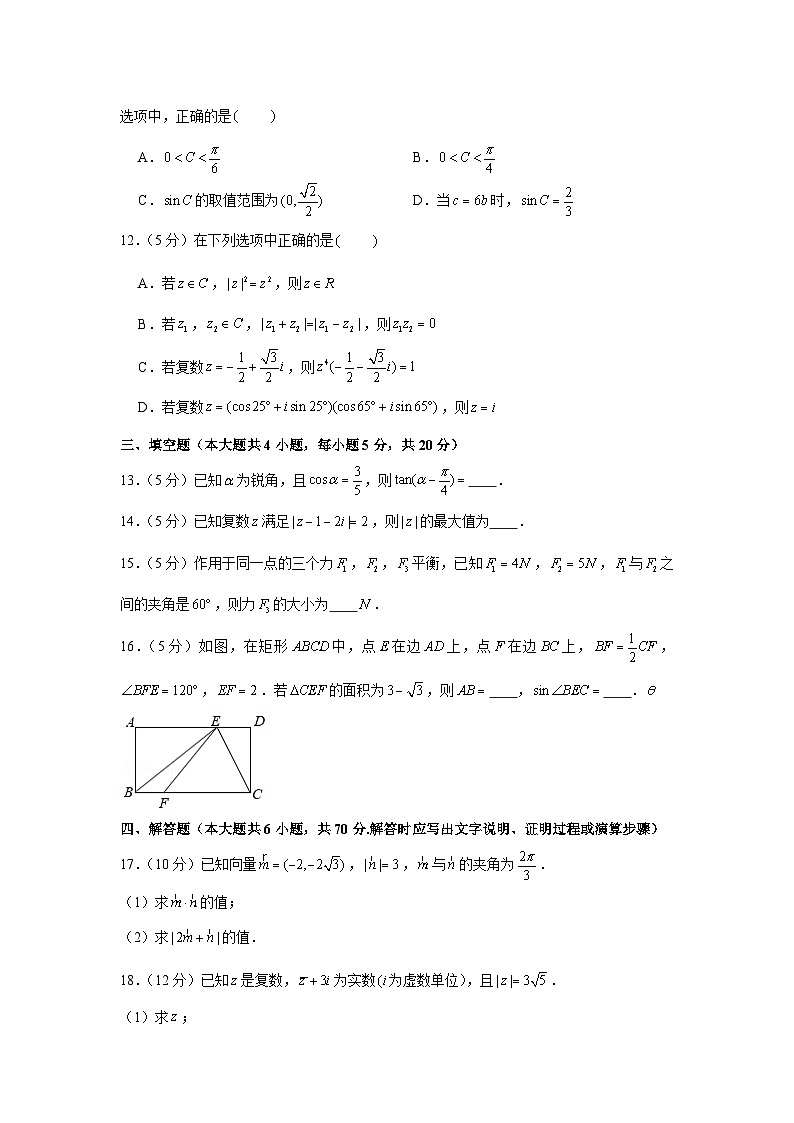 选项中,正确的是(　　)
A. 0 < C < π/6　　B. 0 < C < π/4
C. sin C 的取值范围为 (0, √2/2)　　D. 当 c = 6b 时, sin C = 2/3
12.(5分)在下列选项中正确的是(　　)
A. 若 z ∈ C, |z|² = z², 则 z ∈ R
B. 若 z₁, z₂ ∈ C, |z₁ + z₂|=|z₁ − z₂|, 则 z₁z₂ = 0
C. 若复数 z = −1/2 + (√3/2)i, 则 z⁴(−1/2 − (√3/2)i) = 1
D. 若复数 z = (cos25° + i sin 25°)(cos65° + i sin 65°), 则 z = i
三、填空题(本大题共4小题,每小题5分,共20分)
13.(5分)已知 α 为锐角,且 cos α = 3/5, 则 tan(α − π/4) = ____.
14.(5分)已知复数 z 满足 |z − 1 − 2i|= 2, 则 |z| 的最大值为____.
15.(5分)作用于同一点的三个力 F₁, F₂, F₃ 平衡,已知 F₁ = 4N, F₂ = 5N, F₁ 与 F₂ 之
间的夹角是 60°, 则力 F₃ 的大小为____N.
16.(5分)如图,在矩形 ABCD 中,点 E 在边 AD 上,点 F 在边 BC 上, BF = 1/2 CF,
∠BFE = 120°, EF = 2. 若 ΔCEF 的面积为 3 − √3, 则 AB = ____, sin ∠BEC = ____. θ
A E D
B F C
四、解答题(本大题共6小题,共70分.解答时应写出文字说明、证明过程或演算步骤)
17.(10分)已知向量 m = (−2, −2√3), |n|= 3, m 与 n 的夹角为 2π/3.
(1)求 m · n 的值;
(2)求 |2m + n| 的值.
18.(12分)已知 z 是复数, z + 3i 为实数(i 为虚数单位),且 |z|= 3√5.
(1)求 z;